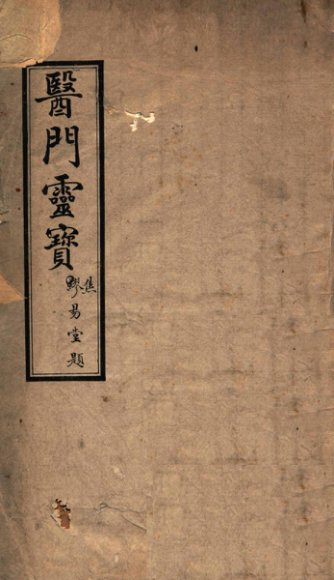 醫門靈寶
焦易堂題